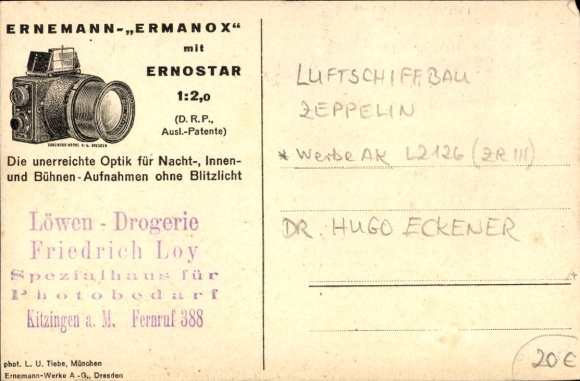 ERNEMANN-„ERMANOX“
mit
ERNOSTAR
1:2,0
(D. R. P.,
Ausl.-Patente)
ERNEMANN-WERKE A. G. DRESDEN
Die unerreichte Optik für Nacht-, Innen-
und Bühnen-Aufnahmen ohne Blitzlicht
Löwen - Drogerie
Friedrich Loy
Spezialhaus für
Photobedarf
Kitzingen a. M. Fernruf 388
phot. L. U. Tiebe, München
Ernemann-Werke A.-G., Dresden
LUFTSCHIFFBAU
ZEPPELIN
* Werbe AK LZ126 (ZR III)
DR. HUGO ECKENER
20€